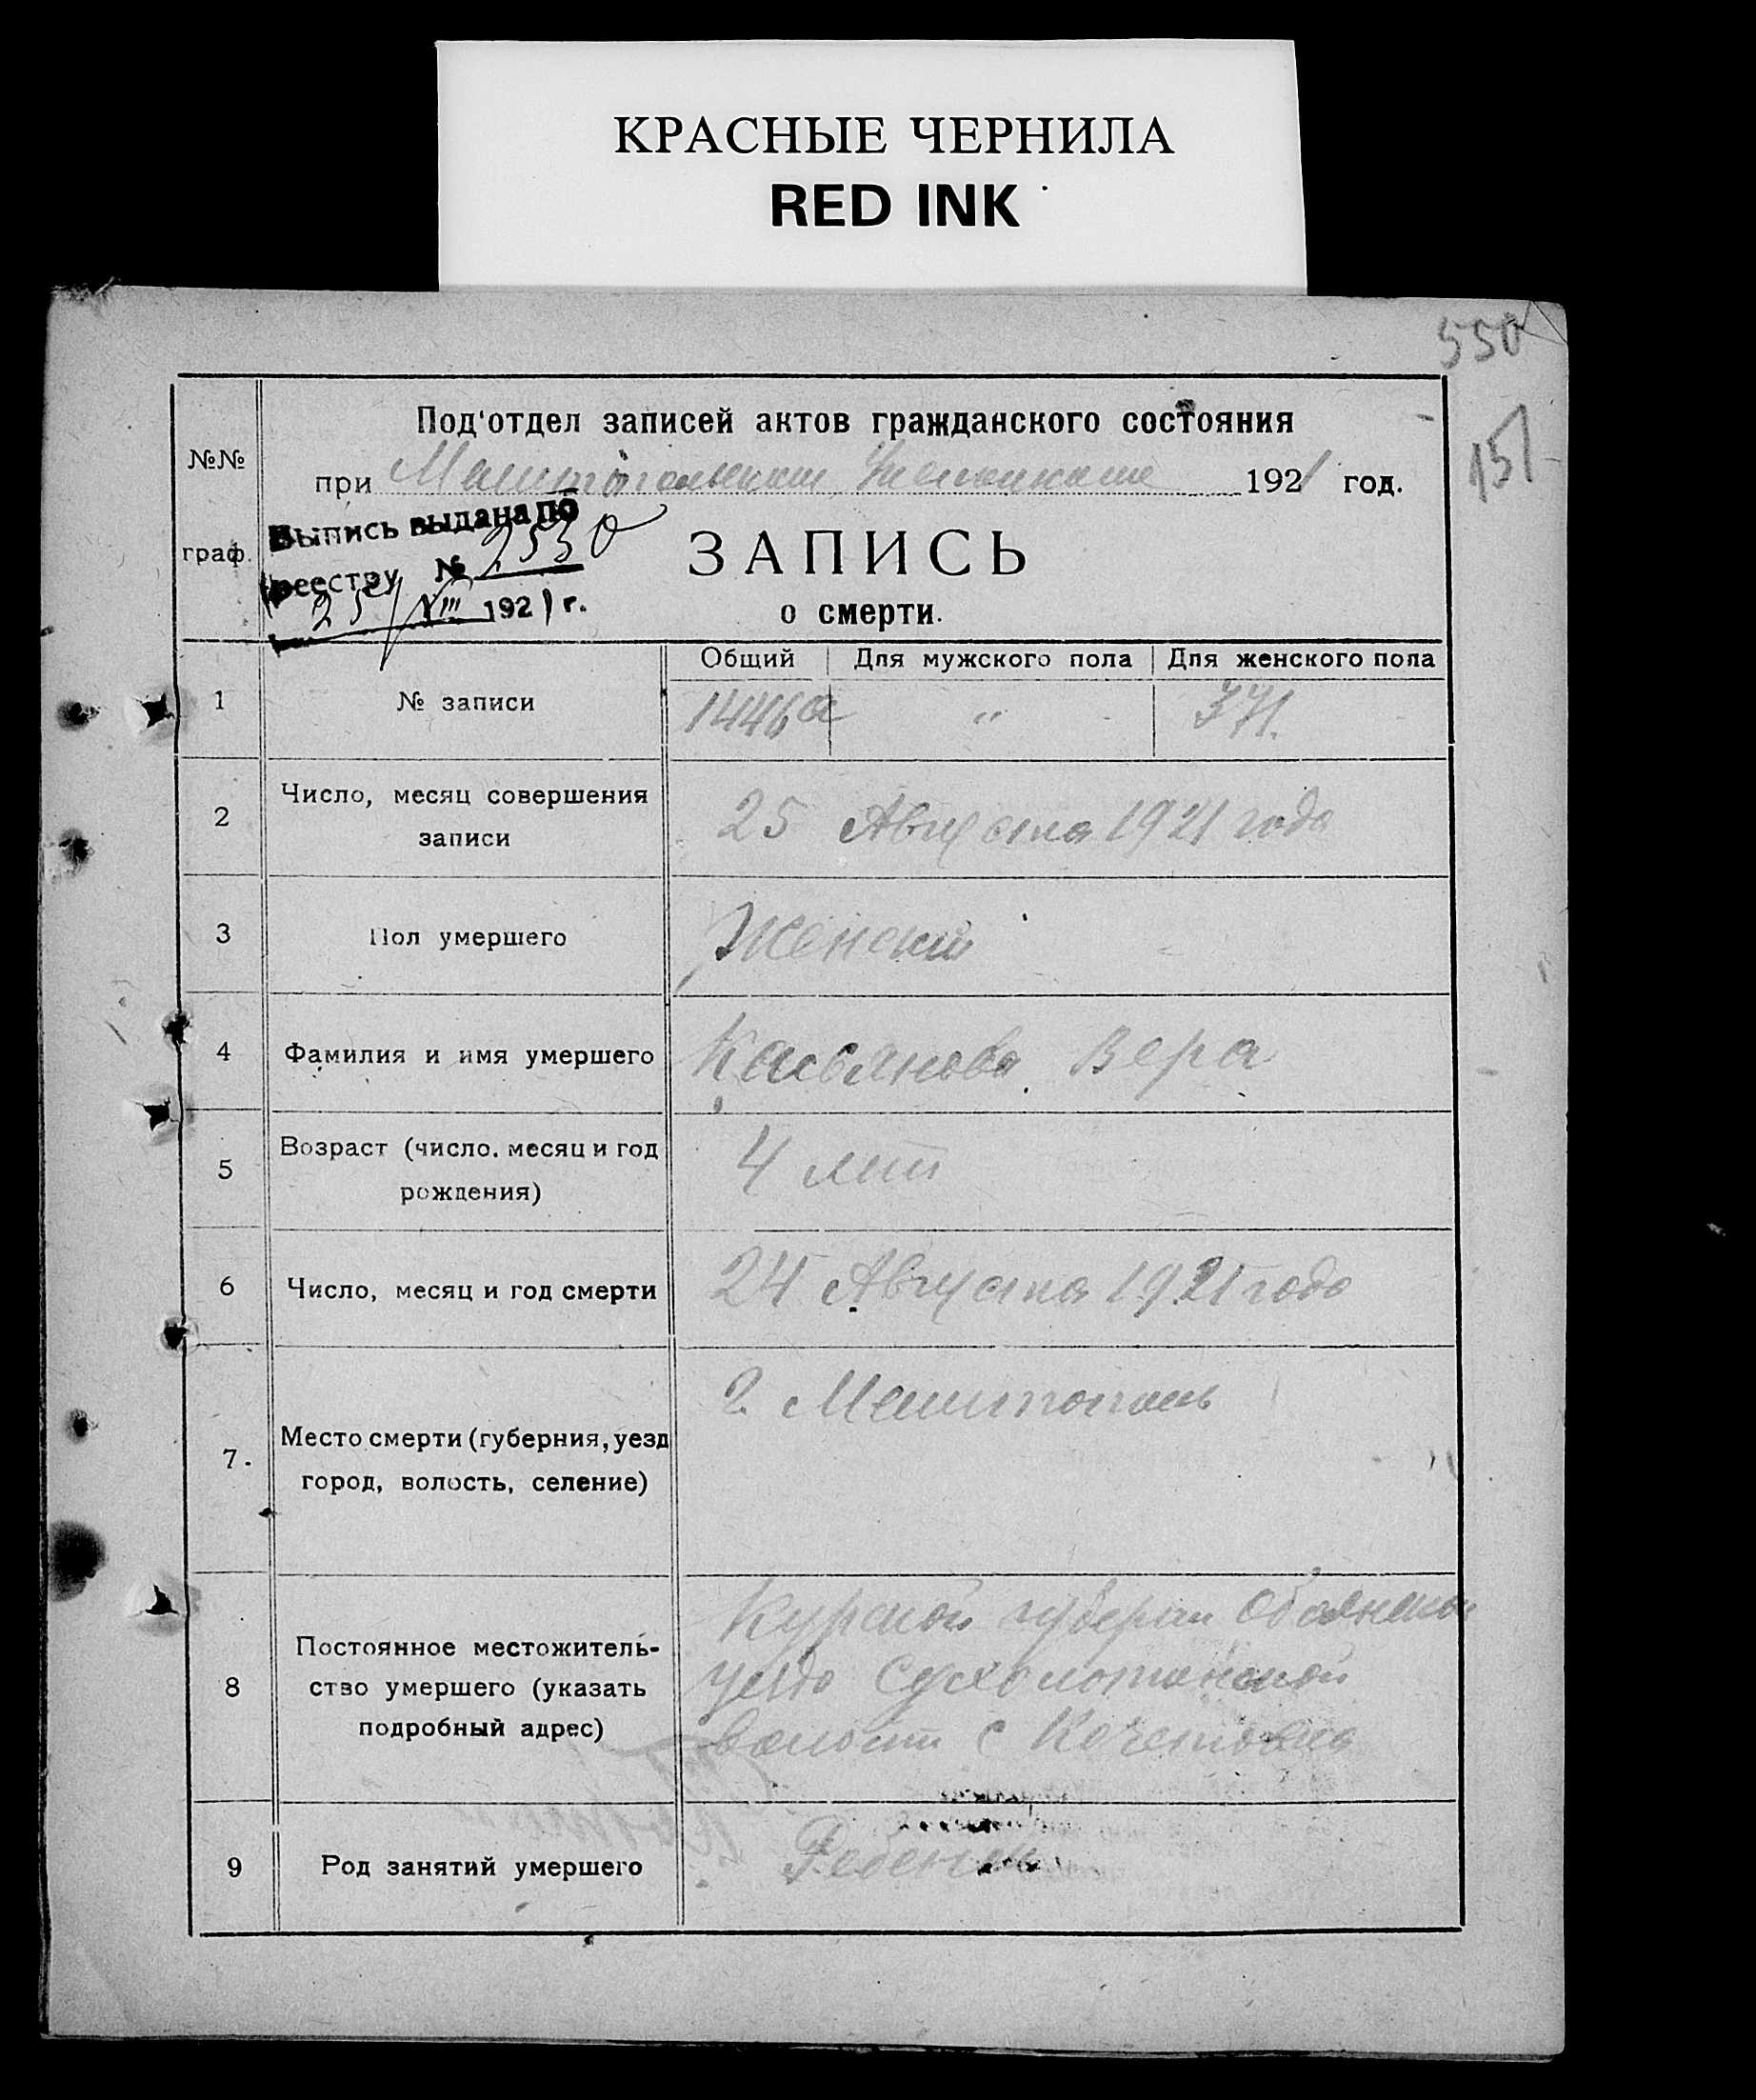 КРАСНЫЕ ЧЕРНИЛА
RED INK
550
151
Под'отдел записей актов гражданского состояния
№№
граф.
при Мелитопольском 1921 год.
Выпись выдана по
реестру № 2530
25/VIII 1921 г.
ЗАПИСЬ
о смерти.
Общий Для мужского пола Для женского пола
1 № записи 1446а " 371.
2 Число, месяц совершения
записи
25 Августа 1921 года
3 Пол умершего Женский
4 Фамилия и имя умершего Касьянова Вера
5 Возраст (число. месяц и год
рождения)
4 лет
6 Число, месяц и год смерти 24 Августа 1921 года
7. Место смерти (губерния, уезд
город, волость, селение)
г. Мелитополь
8 Постоянное местожитель-
ство умершего (указать
подробный адрес)
Курской губерни Обоянской
уезда Сухосолотинской
волости с Кочетовка
9 Род занятий умершего Ребенок